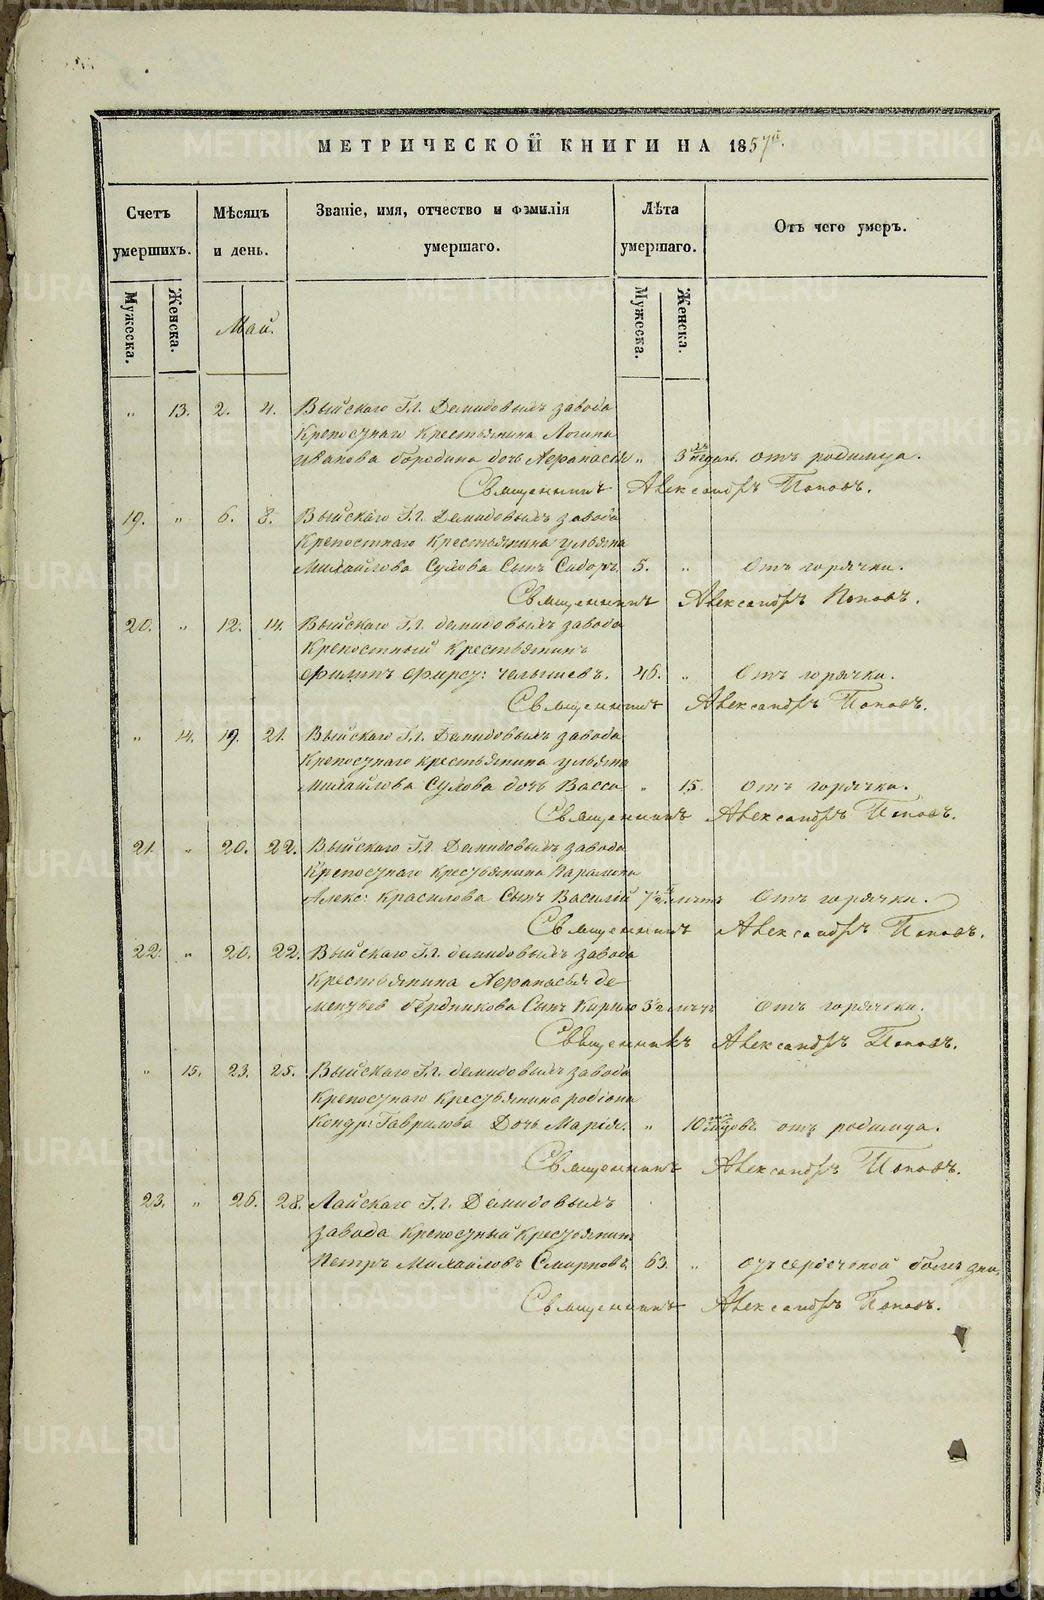 МЕТРИЧЕСКОЙ КНИГИ НА 1857й.
Счетъ умершихъ.
Мѣсяцъ и день.
Званіе, имя, отчество и фамилія умершаго.
Лѣта умершаго.
Отъ чего умеръ.
Мужеска.
Женска.
Май.
Мужеска.
Женска.
„ 13. 2. 4. Выйскаго Г.г. Демидовыхъ завода
крепостнаго крестьянина Логина
Иванова Бородина дочь Афанасія „ 3 недѣль отъ родимца.
Священникъ Александръ Поповъ.
19. „ 6. 8. Выйскаго Г.г. Демидовыхъ завода
крепостнаго крестьянина Ульяна
Михайлова Сулова сынъ Сидоръ 5. „ Отъ горячки.
Священникъ Александръ Поповъ.
20. „ 12. 14. Выйскаго Г.г. Демидовыхъ завода
крепостный крестьянинъ
Филипъ Фирсу: Челышевъ. 46. „ Отъ горячки.
Священникъ Александръ Поповъ.
„ 14. 19. 21. Выйскаго Г.г. Демидовыхъ завода
крепостнаго крестьянина Ульяна
Михайлова Сулова дочь Васса „ 15. Отъ горячки.
Священникъ Александръ Поповъ.
21 „ 20. 22. Выйскаго Г.г. Демидовыхъ завода
крепостнаго крестьянина Варлама
Алекс: Красилова сынъ Василій Отъ горячки.
Священникъ Александръ Поповъ.
22. „ 20. 22. Выйскаго Г.г. Демидовыхъ завода
крестьянина Афанасья Де
ментьев Бердникова сынъ Отъ горячки.
Священникъ Александръ Поповъ.
„ 15. 23. 25. Выйскаго Г.г. Демидовыхъ завода
крепостнаго крестьянина Родіона
Кондр: Гаврилова дочь Марія. „ 10 отъ родимца.
Священникъ Александръ Поповъ.
23. „ 26. 28. Лайскаго Г.г. Демидовыхъ
завода крепостный крестьянинъ
Петръ Михайловъ Смирновъ 63. „ отъ сердечной болезни,
Священникъ Александръ Поповъ.
METRIKI.GASO-URAL.RU